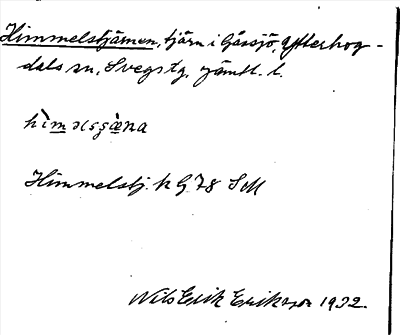 Himmelstjärnen, tjärn i Gåssjö, Ytterhog-
dals sn, Svegs tg, Jämtl. l.
hìməlsʂæ̀na
Himmelstj. k G. 78 SM
Nils Erik Eriksson 1932.